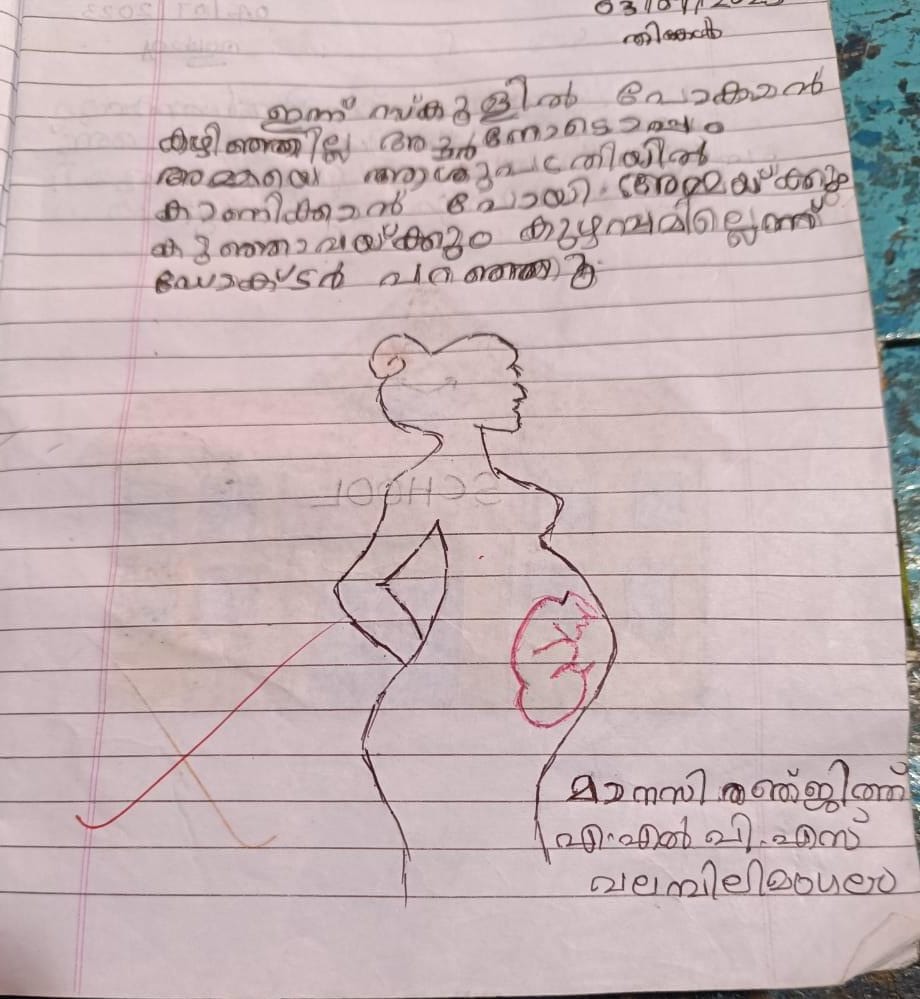 തിങ്കൾ
ഇന്ന് സ്കൂളിൽ പോകാൻ
കഴിഞ്ഞില്ല അച്ഛനോടൊപ്പം
അമ്മയെ ആശുപത്രിയിൽ
കാണിക്കാൻ പോയി. അമ്മയ്ക്കും
കുഞ്ഞാവയ്ക്കും കുഴപ്പമില്ലെന്ന്
ഡോക്ടർ പറഞ്ഞു.
SCHOOL
മാനസി രഞ്ജിത്ത്
എ.എൽ.പി.എസ്